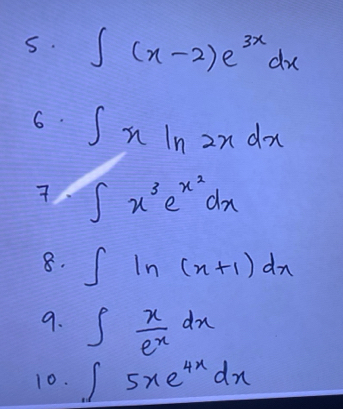 5. ∫ (x-2)e^{3x} dx
6. ∫ x ln 2x dx
7. ∫ x³e^{x²} dx
8. ∫ ln (x+1) dx
9. ∫ x/e^x dx
10. ∫ 5xe^{4x} dx